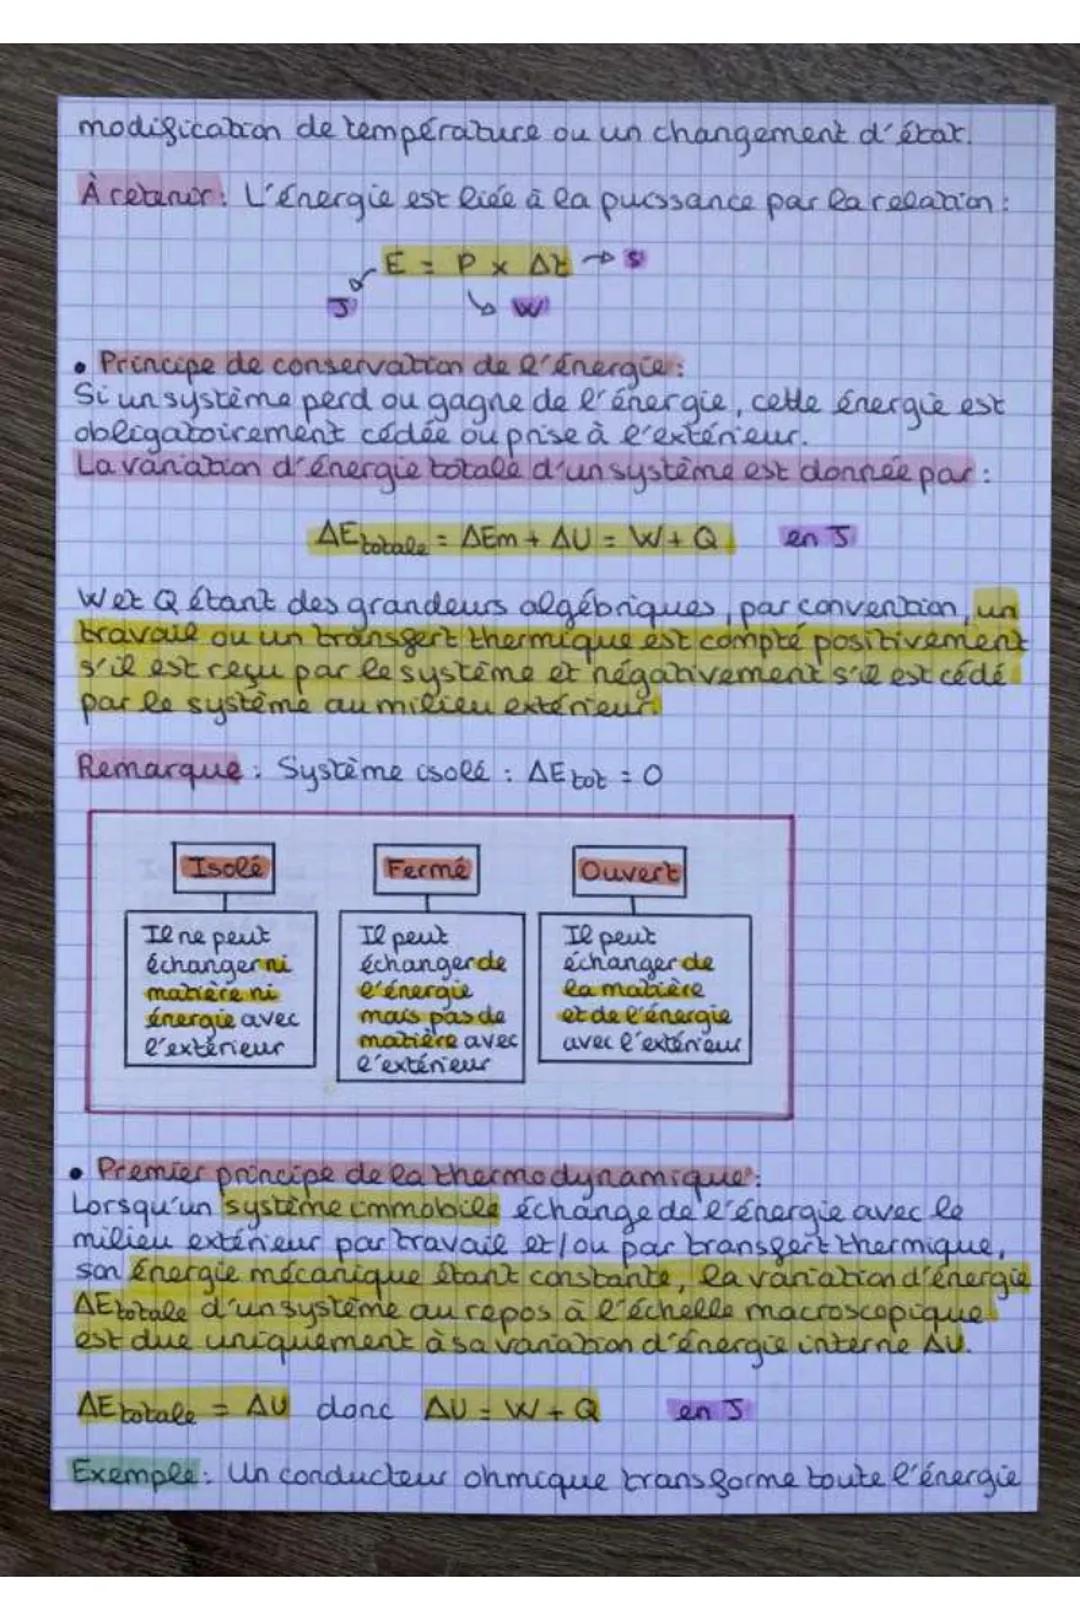 modification de température ou un changement d'état.
À retenir : L'énergie est liée à la puissance par la relation :
E = P x Δt → s
J
W
• Principe de conservation de l'énergie :
Si un système perd ou gagne de l'énergie, cette énergie est
obligatoirement cédée ou prise à l'extérieur.
La variation d'énergie totale d'un système est donnée par :
ΔEtotale = ΔEm + ΔU = W + Q en J
W et Q étant des grandeurs algébriques, par convention, un
travail ou un transfert thermique est compté positivement
s'il est reçu par le système et négativement s'il est cédé
par le système au milieu extérieur.
Remarque : Système isolé : ΔEtot = 0
Isolé
Il ne peut
échanger ni
matière ni
énergie avec
l'extérieur
Fermé
Il peut
échanger de
l'énergie
mais pas de
matière avec
l'extérieur
Ouvert
Il peut
échanger de
la matière
et de l'énergie
avec l'extérieur
• Premier principe de la thermodynamique :
Lorsqu'un système immobile échange de l'énergie avec le
milieu extérieur par travail et/ou par transfert thermique,
son énergie mécanique étant constante, la variation d'énergie
ΔEtotale d'un système au repos à l'échelle macroscopique
est due uniquement à sa variation d'énergie interne ΔU.
ΔEtotale = ΔU donc ΔU = W + Q en J
Exemple : Un conducteur ohmique transforme toute l'énergie